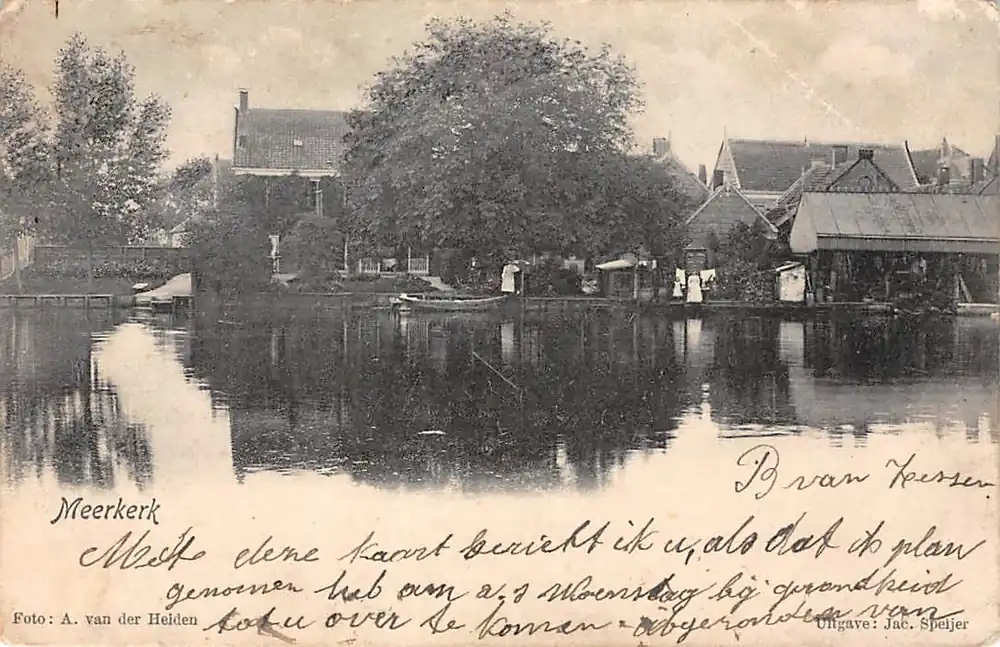 B van Hessen
Meerkerk
Met deze kaart bericht ik u, als dat ik plan
genomen heb om a.s Woensdag bij gezondheid
tot u over te komen
van
Foto: A. van der Heiden
Uitgave: Jac. Speijer